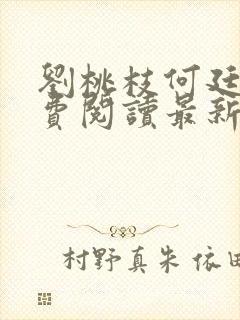 劉桃枝何廷
費閱讀最新
村野真朱 依田